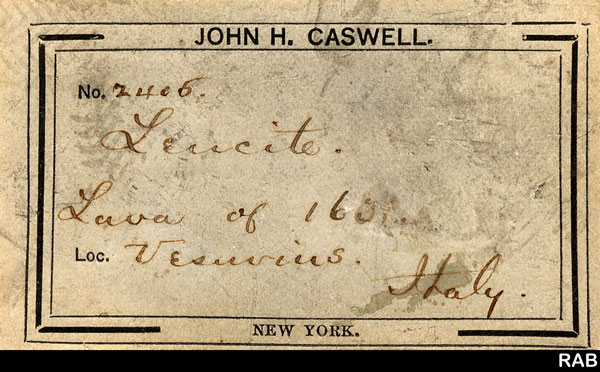 JOHN H. CASWELL.
No. 2406.
Leucite.
Lava of 1631.
Loc. Vesuvius.
Italy.
NEW YORK.
RAB